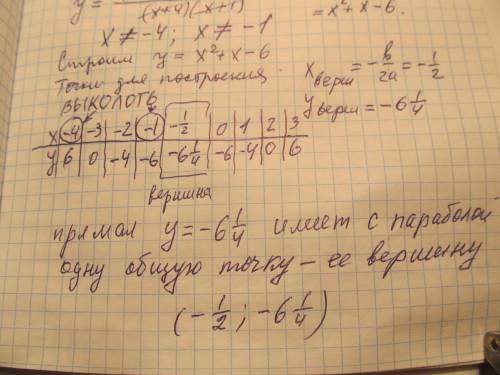 y = 
(x+4)(x+1)
= x² + x - 6.
x ≠ -4; x ≠ -1
Строим y = x² + x - 6
Точки для построения.
x верш = -b/2a = -1/2
y верш = -6 1/4
ВЫКОЛОТЬ
x | -4 | -3 | -2 | -1 | -1/2 | 0 | 1 | 2 | 3
y | 6 | 0 | -4 | -6 | -6 1/4 | -6 | -4 | 0 | 6
вершина
прямая y = -6 1/4 имеет с параболой
одну общую точку - её вершину
(-1/2; -6 1/4)